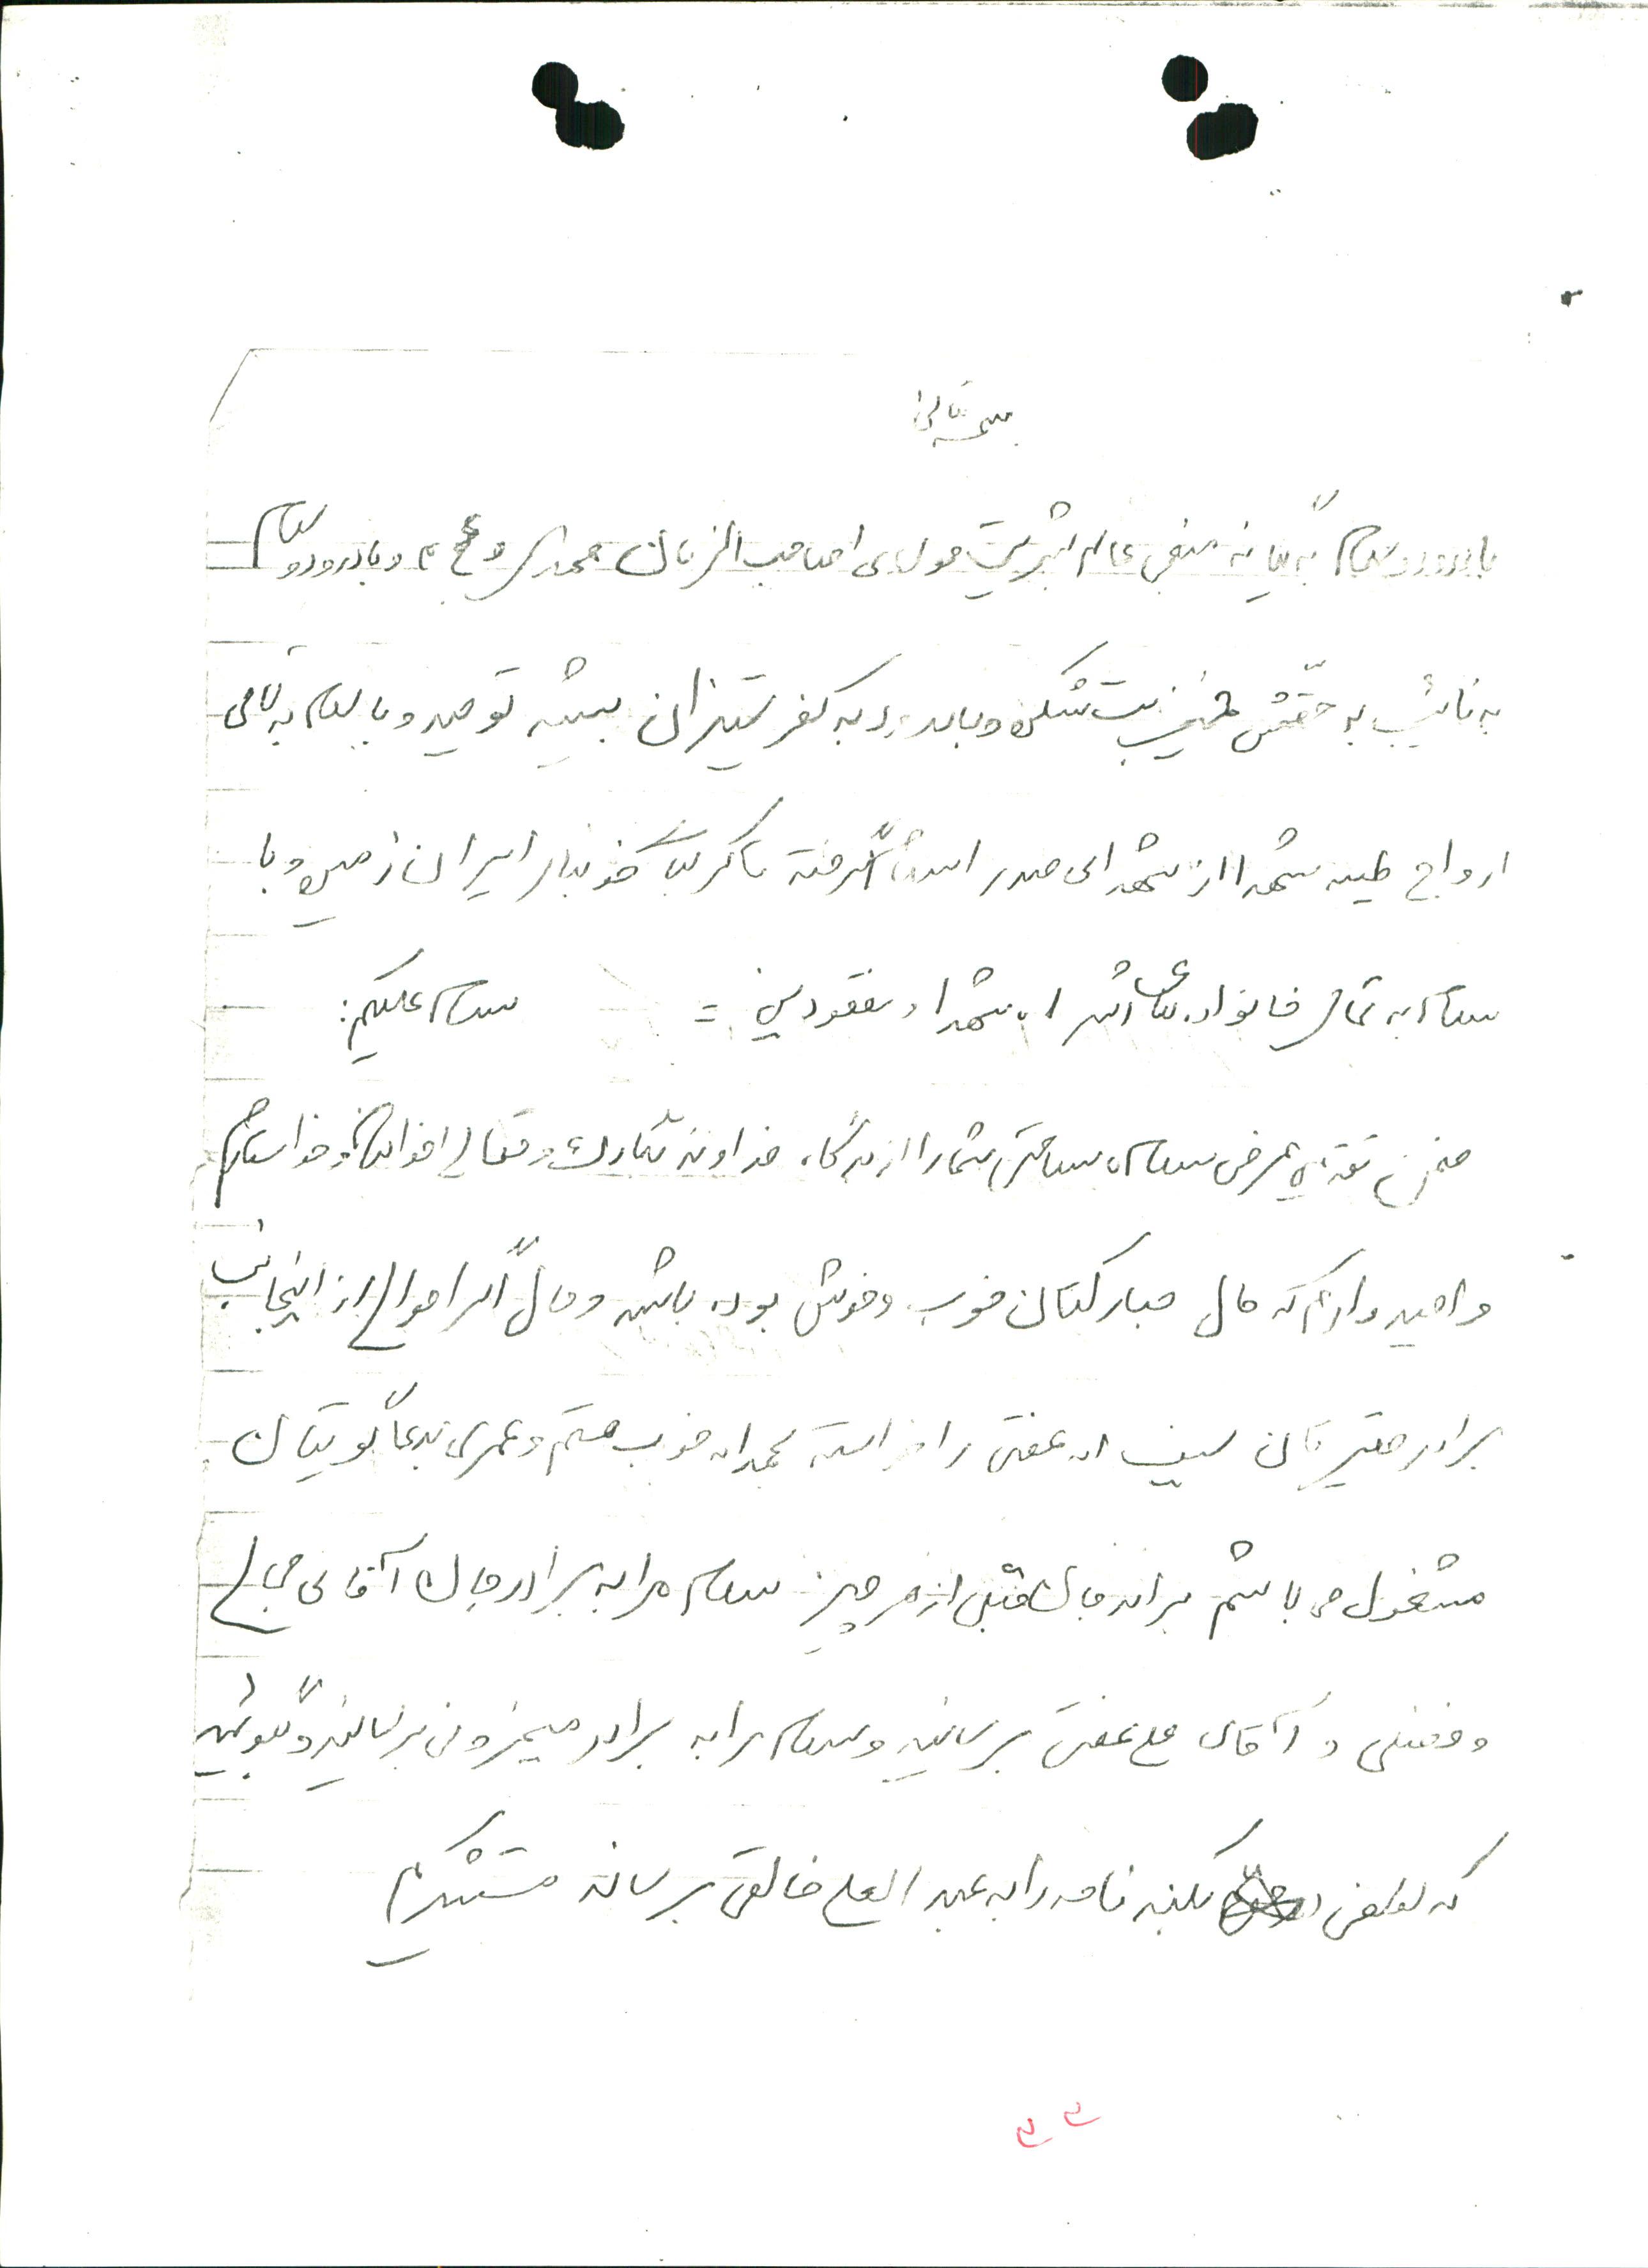 بسمه تعالی
با درود و سلام به یگانه منجی عالم بشریت مولای صاحب الزمان مهدی عج و با درود و سلام
به نائب به حقش خمینی بت شکن و با درود به کفر ستیزان بیشه توحید و با سلام به تمامی
ارواح طیبه شهدا از شهدای صدر اسلام گرفته تا کربلای خونبار ایران زمین و با
سلام به تمامی خانواده های اسرا، شهدا و مفقودین = سلام علیکم:
ضمن تقدیم عرض سلام، سلامتی شما را از درگاه خداوند تبارک و تعالی خواهانم و خواستارم
و امیدوارم که حال مبارکتان خوب و خوش بوده باشد و حال اگر احوالی از اینجانب
برادر حقیرتان سیف اله عفتی را خواسته بحمداله خوب هستم و عمری بدعاگوئیتان
مشغول می باشم برادر جان قبل از هر چیز سلام مرا به برادر جان آقای حاجی
و فضلی و آقای علی عفتی برسانید و سلام مرا به برادر برسانید و بگوئید
که لطفی بکند نامه را به عبدالعلی خالقی برساند متشکرم
۳۳